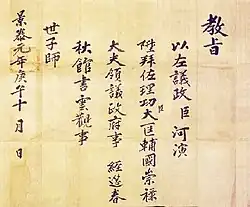 教旨
以左議政臣河演
陞拜佐理功臣大匡輔國崇祿
大夫領議政府事 經筵春
秋館書雲觀事
世子師
景泰元年庚午十月 日